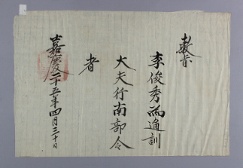 敎旨
李俊秀爲通訓
大夫行南部令
者
嘉慶二十五年四月二十日